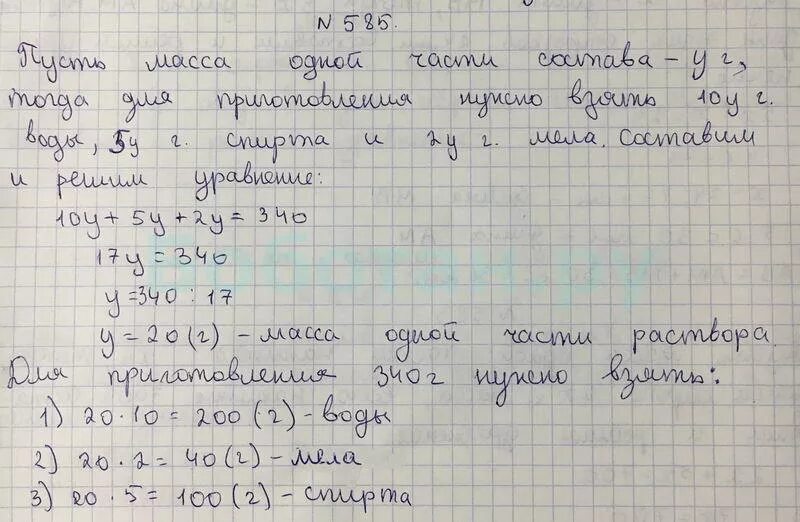 N 585.
Пусть масса одной части состава – y г,
тогда для приготовления нужно взять 10y г.
воды, 5y г. спирта и 2y г. мела. Составим
и решим уравнение:
10y + 5y + 2y = 340
17y = 340
y = 340 : 17
y = 20 (г) – масса одной части раствора.
Для приготовления 340 г нужно взять:
1) 20 · 10 = 200 (г) – воды
2) 20 · 2 = 40 (г) – мела
3) 20 · 5 = 100 (г) – спирта